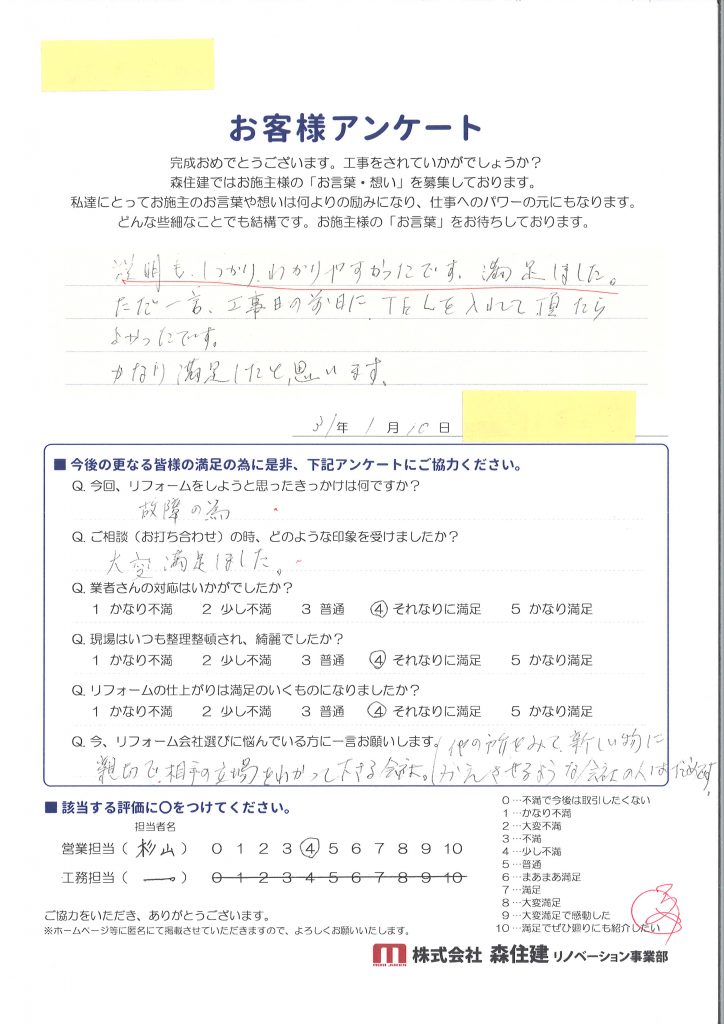 お客様アンケート
完成おめでとうございます。工事をされていかがでしょうか？
森住建ではお施主様の「お言葉・想い」を募集しております。
私達にとってお施主のお言葉や想いは何よりの励みになり、仕事へのパワーの元にもなります。
どんな些細なことでも結構です。お施主様の「お言葉」をお待ちしております。
説明も、しっかり、わかりやすかったです。満足しました。
ただ一言、工事日の前日に、TELを入れて頂たら
よかったです。
かなり満足したと思います。
31年 1月 10日
■ 今後の更なる皆様の満足の為に是非、下記アンケートにご協力ください。
Q. 今回、リフォームをしようと思ったきっかけは何ですか？
故障の為
Q. ご相談（お打ち合わせ）の時、どのような印象を受けましたか？
大変満足しました。
Q. 業者さんの対応はいかがでしたか？
1 かなり不満 2 少し不満 3 普通 ④ それなりに満足 5 かなり満足
Q. 現場はいつも整理整頓され、綺麗でしたか？
1 かなり不満 2 少し不満 3 普通 ④ それなりに満足 5 かなり満足
Q. リフォームの仕上がりは満足のいくものになりましたか？
1 かなり不満 2 少し不満 3 普通 ④ それなりに満足 5 かなり満足
Q. 今、リフォーム会社選びに悩んでいる方に一言お願いします。
親切で、相手の立場をわかって下さる会社。
他の所をみて、新しい物に
かえさせるような会社の人はだめです。
■ 該当する評価に〇をつけてください。
担当者名
営業担当（ 杉山 ） 0 1 2 3 ④ 5 6 7 8 9 10
工務担当（ ー ） 0 1 2 3 4 5 6 7 8 9 10
0…不満で今後は取引したくない
1…かなり不満
2…大変不満
3…不満
4…少し不満
5…普通
6…まあまあ満足
7…満足
8…大変満足
9…大変満足で感動した
10…満足でぜひ廻りにも紹介したい
ご協力をいただき、ありがとうございます。
※ホームページ等に匿名にて掲載させていただきますので、よろしくお願いいたします。
株式会社 森住建 リノベーション事業部